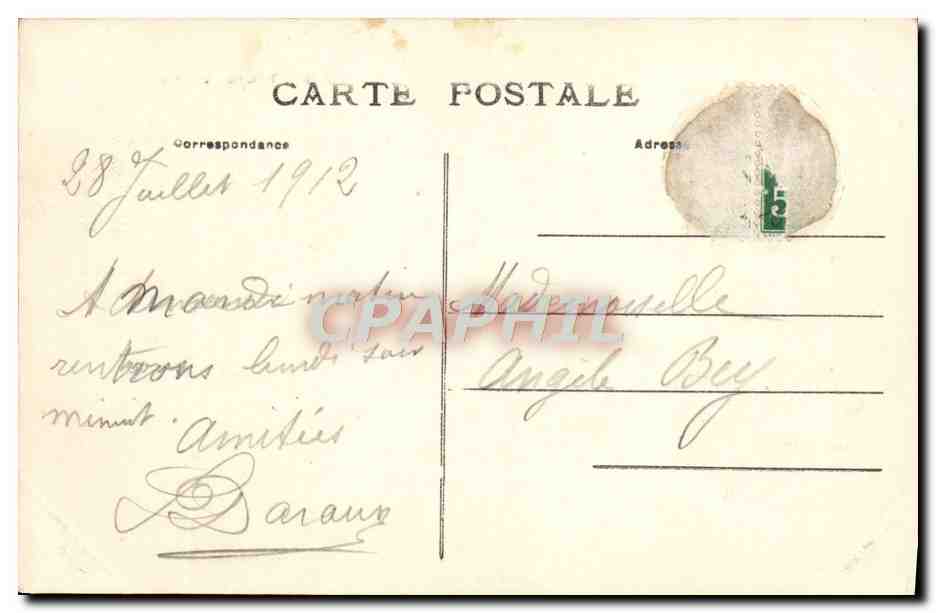 CARTE POSTALE
Correspondance
Adresse
5
28 Juillet 1912
A mardi matin
rentrons lundi soir
minuit.
Amitiés
Daraux
Mademoiselle
Angèle Bey
CPAPHIL